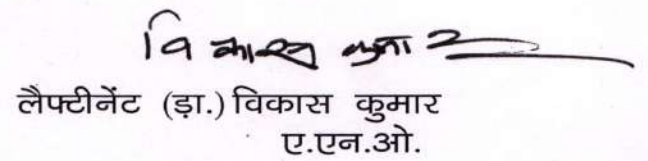 विकास कुमार
लैफ्टीनेंट (ड़ा.) विकास कुमार
ए.एन.ओ.